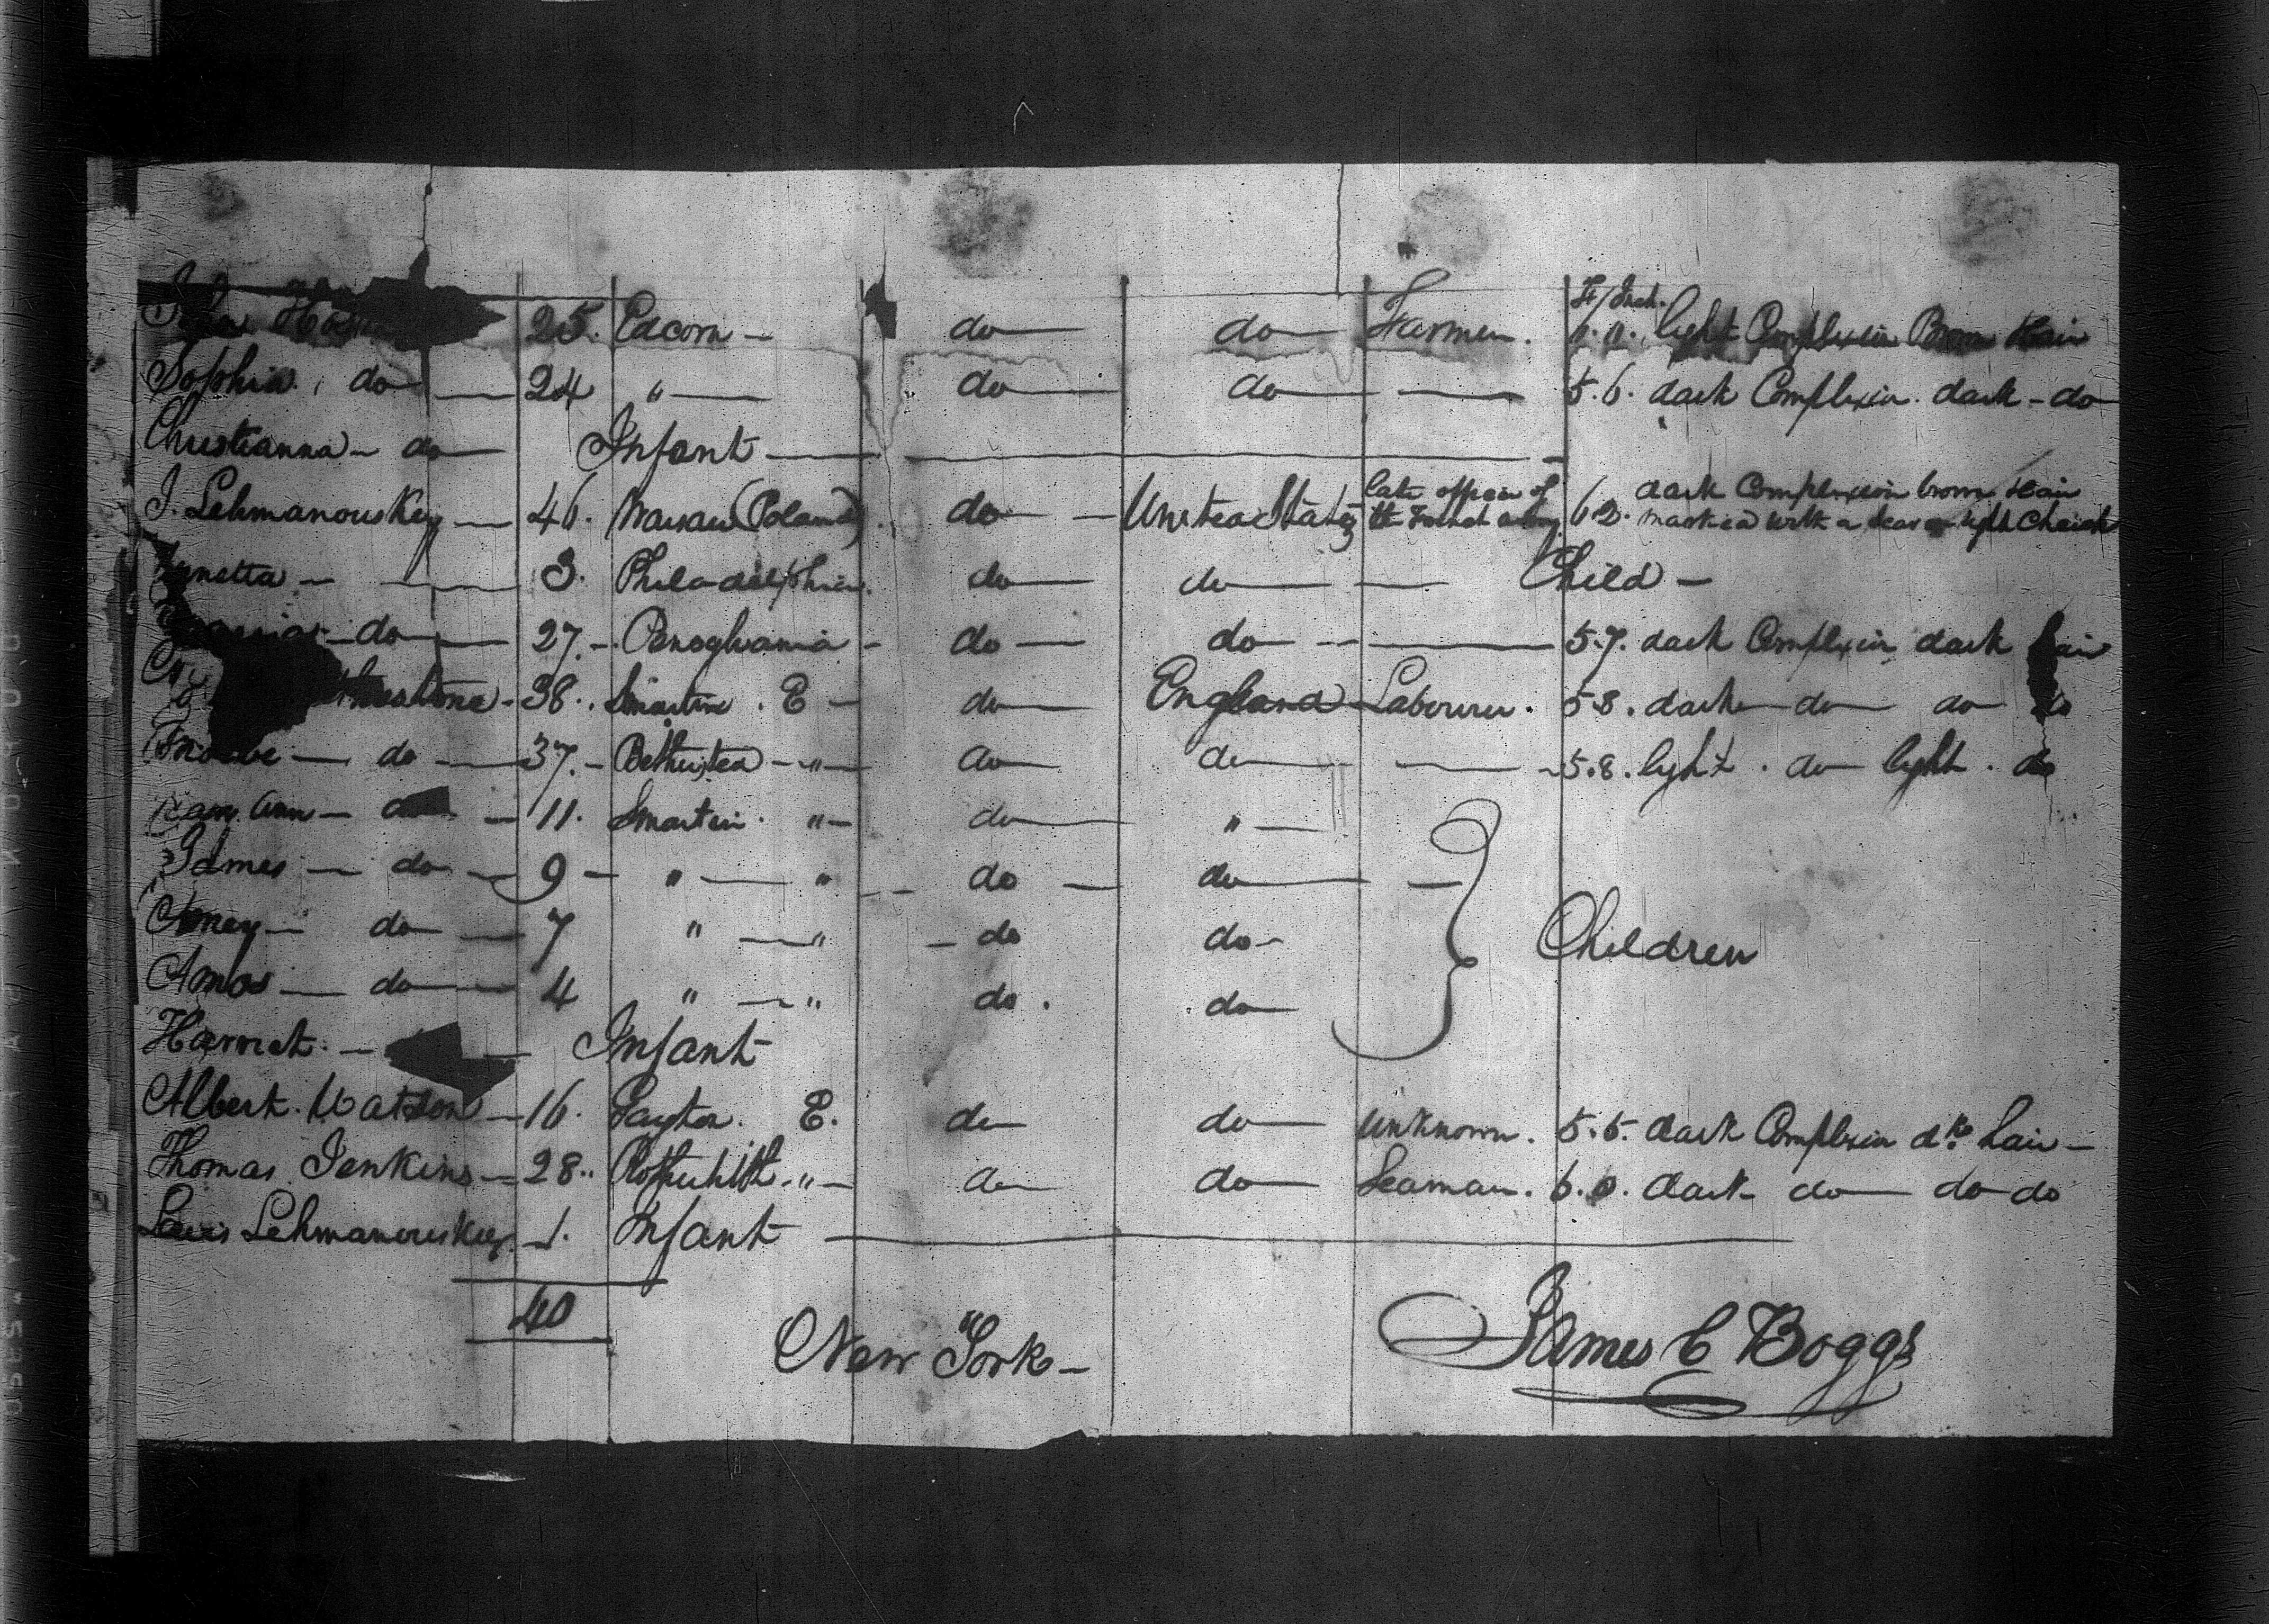 25. Edcom - do do Farmer. Ft/Inch. light Complexion Brown Hair
Sophia do 24 " do do 5.6. dark Complexion. dark - do
Christianna - do Infant
J. Lehmanouskey 46. Warsaw (Poland). do United States late officer of the French army 6 2. dark Complexion brown Hair marked with a scar on left Cheick
3. Philadelphia. do do Child -
do 27. - Pensylvania - do do 5.7. dark Complexion dark hair
38. E - do England Labourer. 5 8. dark do do do
do 37. - " do do 5.8. light. do light. do
Ann - do 11. " do "
James - do 9 - " " do do
Amey - do 7 " " - do do - Children
Amos - do 4 " " do. do
Harriet. - Infant
Albert. Watson - 16. E. do do unknown. 5.5. dark Complexion dk. hair -
Thomas Jenkins - 28.. " do do Seaman. 6.0. dark do do do
Lewis Lehmanouskey. 1. Infant
40
New York -
James C Boggs